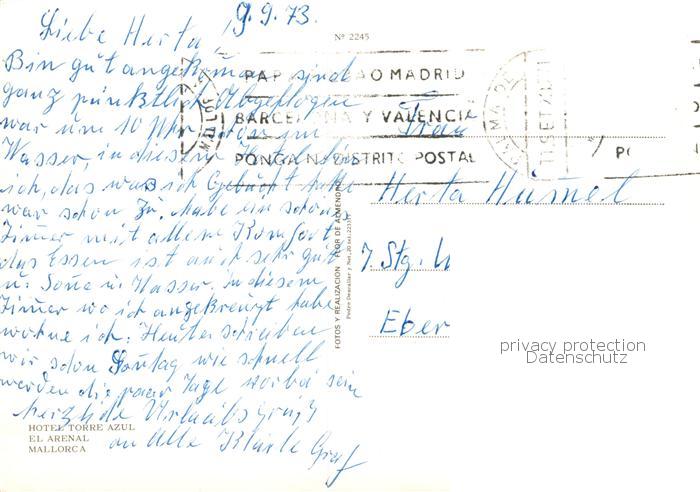 9.9.73.
Liebe Herta!
Bin gut angekommen sind
ganz pünktlich Abgeflogen
war um 10 Uhr schon im
Wasser, in diesem Hotel
ich, das was ich Gebucht hatte
war schon zu. habe ein schönes
Zimer mit allem Komfort
das Essen ist auch sehr gut
u. Sone u. Wasser. in diesem
Zimer wo ich angekreuzt habe
wohne ich. Heute schreiben
wir schon Sontag wie schnell
werden die paar Tage vorbei sein
herzliche Urlaubs Grüße
an Alle Klärle Graf
HOTEL TORRE AZUL
EL ARENAL
MALLORCA
Nº 2245
FOTOS Y REALIZACION FLOR DE ALMENDRO
PAP AO MADRID
BARCELONA Y VALENCIA
PONGA N. DISTRITO POSTAL
PALMA DE
11 SET
PO
Frau
Herta Himel
7. Stg. 4
Eber
privacy protection
Datenschutz